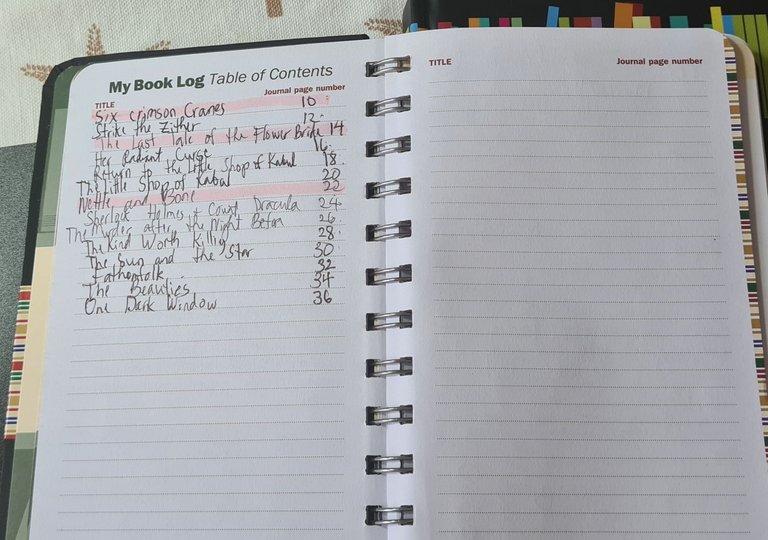 My Book Log Table of Contents
TITLE Journal page number
Six crimson Cranes 10
Strike the Zither 12
The Last Tale of the Flower Bride 14
Her Radiant Curse 16
Return to the Little Shop of Kabul 18
The Little Shop of Kabul 20
Nettle and Bone 22
Sherlock Holmes & Count Dracula 24
The Murder after the Night Before 26
The Kind Worth Killig 28
The Sun and the Star 30
Fathomfolk 32
The Beauties 34
One Dark Window 36
TITLE Journal page number